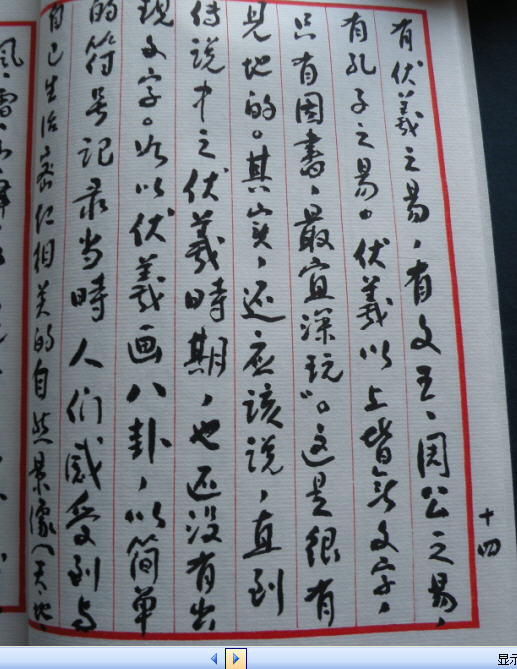 有伏羲之易，有文王、周公之易，
有孔子之易。伏羲以上皆无文字，
只有图书，最宜深玩”。这是很有
见地的。其实，还应该说，直到
传说中之伏羲時期，也还没有出
现文字。所以伏羲画八卦，以简单
的符号记录当時人们感受到与
自己生活密切相关的自然景象（天、地、
風、雷、
十四
显示